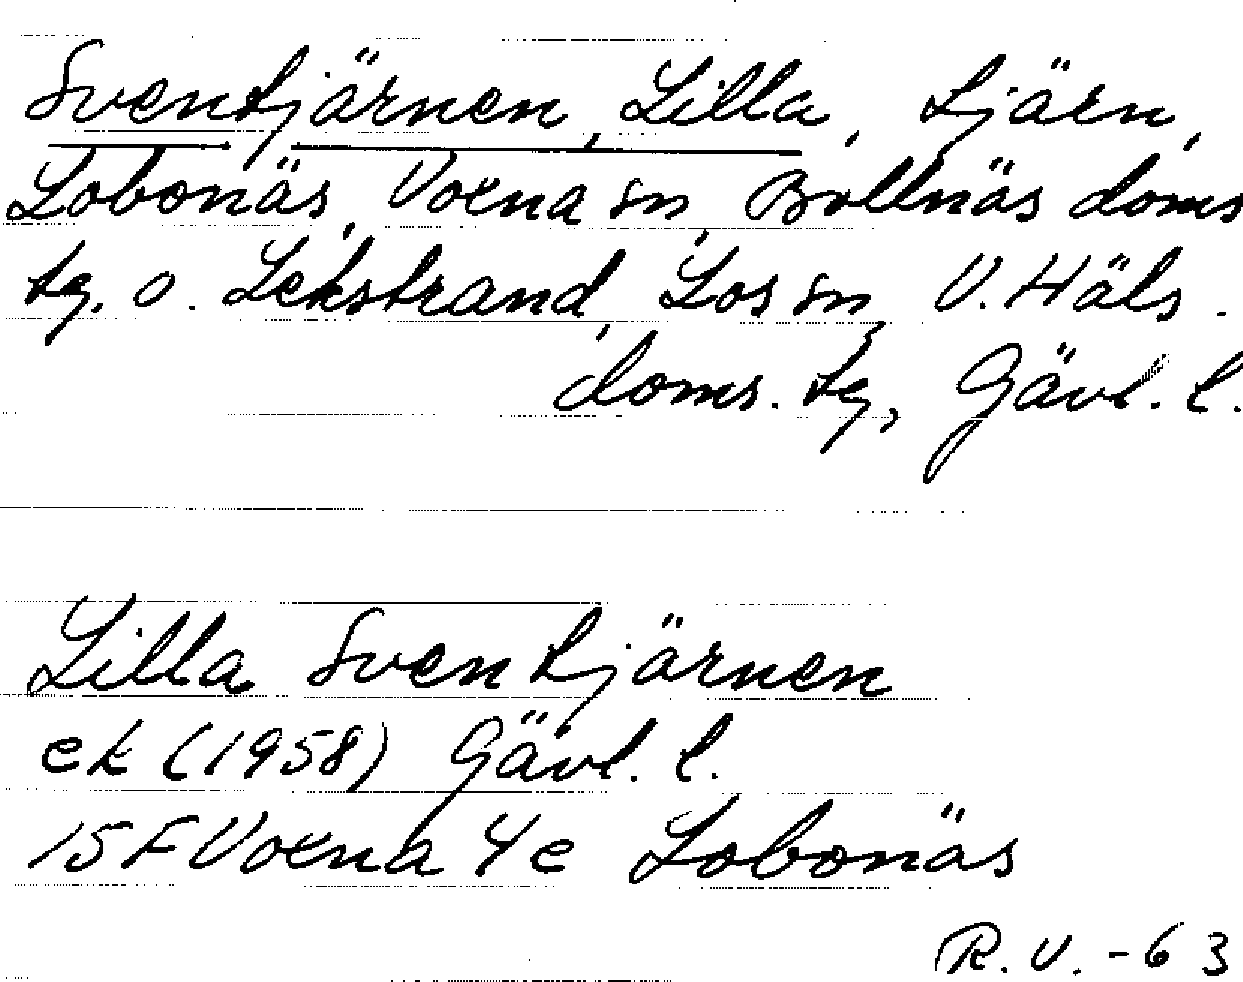 Sventjärnen, Lilla, tjärn,
Lobonäs, Voxna sn, Bollnäs doms
tg. o. Lekstrand, Los sn, V. Häls.
doms. tg, Gävl. l.
Lilla Sventjärnen
ek (1958) Gävl. l.
15F Voxna 4e Lobonäs
R.V. -63